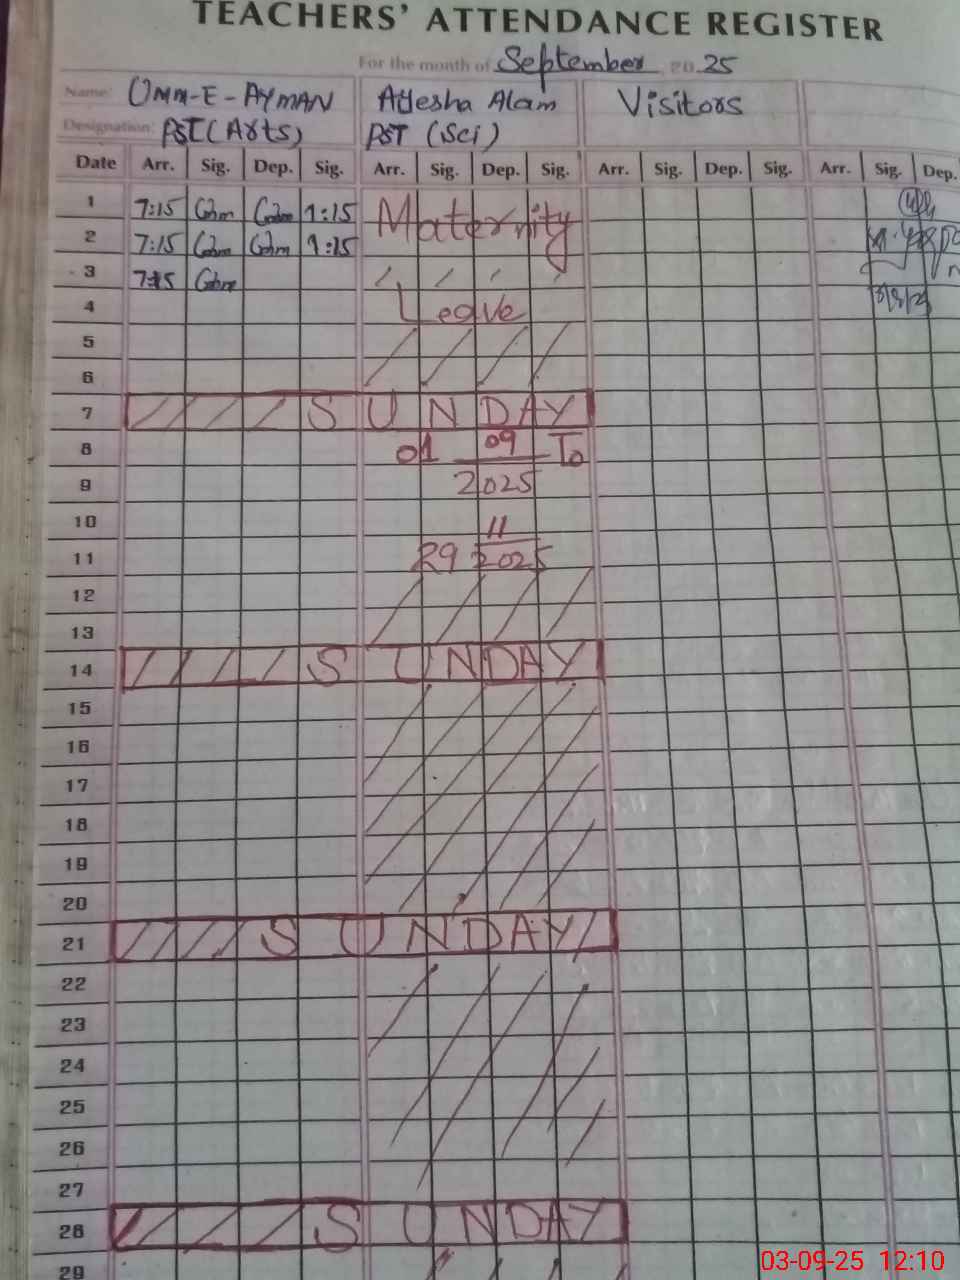 TEACHERS' ATTENDANCE REGISTER
For the month of September 20 25
Name: UMM-E-AYMAN Ayesha Alam Visitors
Designation: PST (Arts) PST (Sci)
Date Arr. Sig. Dep. Sig. Arr. Sig. Dep. Sig. Arr. Sig. Dep. Sig. Arr. Sig. Dep.
1 7:15 1:15 Maternity
2 7:15 1:15
3 7:15
4 Leave
5
6
7 SUNDAY
8 01 09 To
9 2025
10 11
11 29 2025
12
13
14 SUNDAY
15
16
17
18
19
20
21 SUNDAY
22
23
24
25
26
27
28 SUNDAY
29
03-09-25 12:10